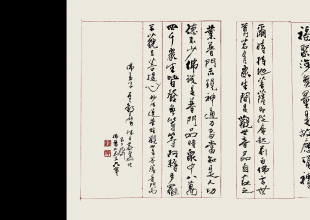 福聚海無量是故應頂禮
爾時持地菩薩即從座起前白佛言世
尊若有眾生聞是觀世音品自在之
業普門示現神通力者當知是人功
德不少佛說是普門品時眾中八萬
四千眾生皆發無等等阿耨多羅
三藐三菩提心 妙法蓮華經觀世音菩薩普門品